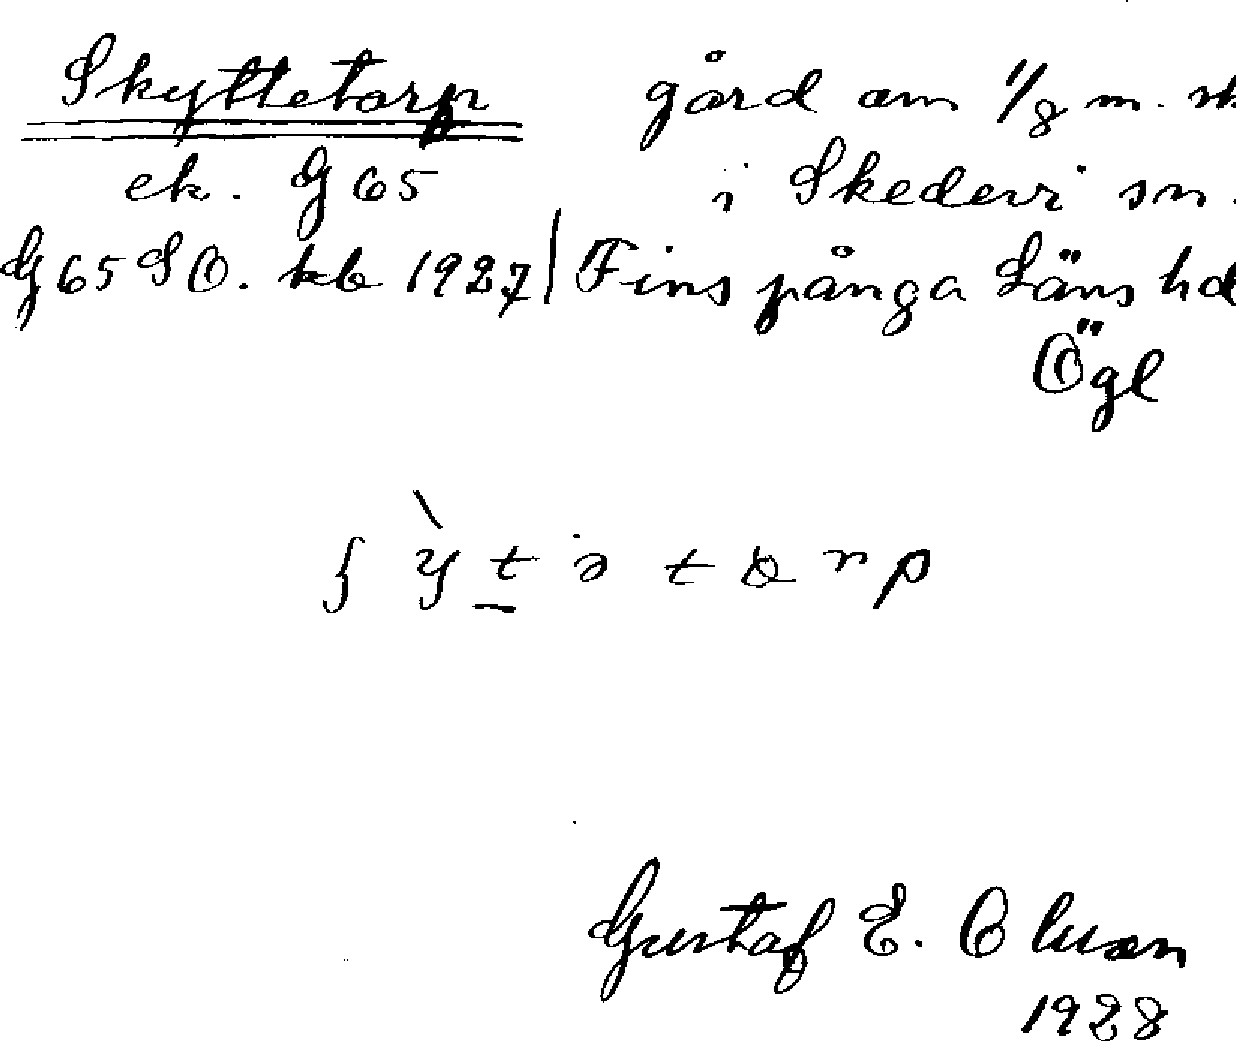 Skyttetorp gård om 1/8 m. sk
ek. G 65 i Skedevi sn.
G 65 S O. kb 1927 Finspånga Läns hd
Ögl
ʃ ỳ t ə t ɷ r p
Gustaf E. Oluson
1928